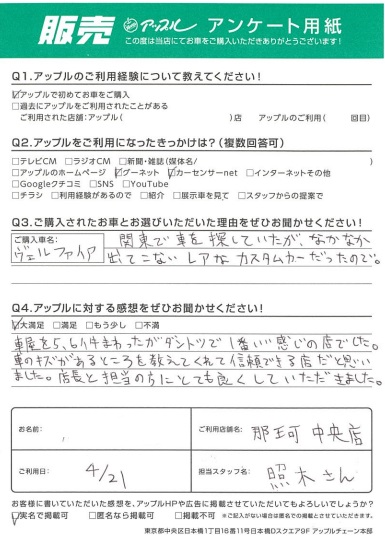 販売 アップル アンケート用紙
この度は当店にてお車をご購入いただきありがとうございます！
Q1.アップルのご利用経験について教えてください！
☑アップルで初めてお車をご購入
□過去にアップルをご利用されたことがある
ご利用された店舗：アップル（ ）店 アップルのご利用（ 回目）
Q2.アップルをご利用になったきっかけは？（複数回答可）
□テレビCM □ラジオCM □新聞・雑誌（媒体名/ ）
□アップルのホームページ ☑グーネット ☑カーセンサーnet □インターネットその他
□Googleクチコミ □SNS □YouTube
□チラシ □利用経験があるので □紹介 □展示車を見て □スタッフからの提案で
Q3.ご購入されたお車とお選びいただいた理由をぜひお聞かせください！
ご購入車名：
ヴェルファイア
関東で車を探していたが、なかなか
出てこないレアなカスタムカーだったので。
Q4.アップルに対する感想をぜひお聞かせください！
☑大満足 □満足 □もう少し □不満
車屋を5、6件まわったがダントツで1番いい感じの店でした。
車のキズがあるところを教えてくれて信頼できる店だと思い
ました。店長と担当の方にとても良くしていただきました。
お名前：
ご利用店舗名： 那珂中央店
ご利用日： 4/21
担当スタッフ名： 照木さん
お客様に書いていただいた感想を、アップルHPや広告に掲載させていただいてもよろしいでしょうか？
☑実名で掲載可 □匿名なら掲載可 □掲載不可 ※ご記入がない場合は匿名での掲載とさせていただきます。
東京都中央区日本橋1丁目16番11号日本橋Dスクエア9F アップルチェーン本部